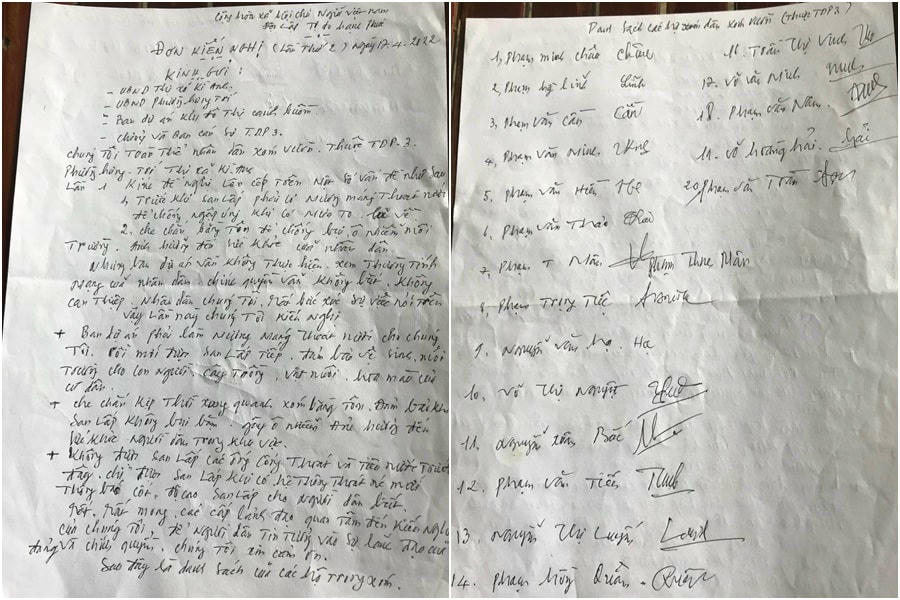 Cộng hòa xã hội chủ Nghĩa việt nam
Độc Lập Tự do hạnh phúc
ĐƠN KIẾN NGHỊ (Lần Thứ 2) Ngày 17.4.2022
KÍNH GỬI:
- UBND Thị xã Kì Anh.
- UBND Phường hưng Trí
- Ban dự án khu đô Thị
- Chi ủy và Ban cán Sự TDP3.
chúng Tôi Toàn Thể nhân dân xóm vườn. Thuộc TDP.3.
Phường hưng Trí Thị xã Kì Anh
Lần 1 Kính đề nghị Lên cấp Trên Một Số vấn đề như Sau
1, Trước khi San Lấp phải có Mương máng Thoát nước
để chống ngập úng khi có mưa To. Lũ về
2. che chắn bằng Tôn để chống bụi, ô nhiễm môi
Trường. Ảnh hưởng đến Sức khỏe của nhân dân.
Nhưng ban dự án vẫn không Thực hiện. xem Thường Tính
mạng của nhân dân chính quyền vẫn không biết. không
can Thiệp. Nhân dân chúng Tôi. rất bức xúc Sự việc nói Trên
vậy Lần này chúng Tôi kiến nghị
+ Ban dự án phải làm Mương máng Thoát nước cho chúng
Tôi. rồi mới được San Lấp Tiếp. đảm bảo vệ sinh môi
Trường cho con người cây Trồng, vật nuôi. hoa màu của
cư dân.
+ che chắn kịp Thời xung quanh xóm bằng Tôn. Đảm bảo khi
San Lấp không bụi bẩm gây ô nhiễm Ảnh hưởng đến
Sức khỏe người dân Trong khu vực.
+ Không được San Lấp các ống Cống Thoát và Tiêu nước Trước
đây. chỉ được San Lấp khi có hệ Thống Thoát mới
Thông báo cốt. độ cao San Lấp cho người dân biết
Rất mong. các cấp Lãnh đạo quan Tâm đến kiến nghị
của chúng Tôi. để người dân Tin Tưởng vào Sự lãnh đạo của
đảng và chính quyền. chúng Tôi xin cảm ơn.
Sau đây là danh Sách của các hộ Trong xóm.
Danh Sách các hộ xóm dân xóm vườn (Thuộc TDP3)
1, Phạm minh châu Châu
2, Phạm hồng Lĩnh Lĩnh
3, Phạm văn Cần Cần
4, Phạm văn Minh
5. Phạm văn Hiền
6, Phạm văn Thảo
7, Phạm T Mân Phạm Thúc Mân
8, Phạm Trọng Tiệc
9. Nguyễn văn Hạ. Hạ
10, Võ Thị Nguyệt
11. Nguyễn xuân Bắc
12. Phạm văn Tiến
13. Nguyễn Thị Luyến
14. Phạm hồng Quân.
16. Trần Thị Vinh
17. Võ văn Minh
18. Phạm văn Năm.
19. Võ hoàng hải. Hải
20, Phạm văn Trần